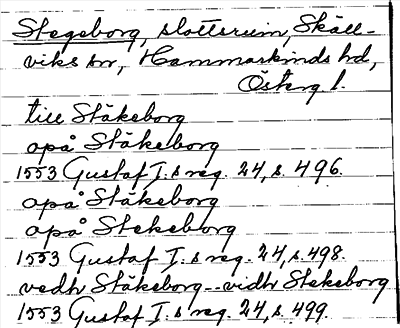 Stegeborg, slottsruin, Skäll-
viks sn, Hammarkinds hd,
Österg. l.
till Stäkeborg
opå Stäkeborg
1553 Gustaf I.s reg. 24, s. 496.
opå Stäkeborg
opå Stekeborg
1553 Gustaf I.s reg. 24, s. 498.
vedh Stäkeborg -- vidh Stekeborg
1553 Gustaf I.s reg. 24, s. 499.